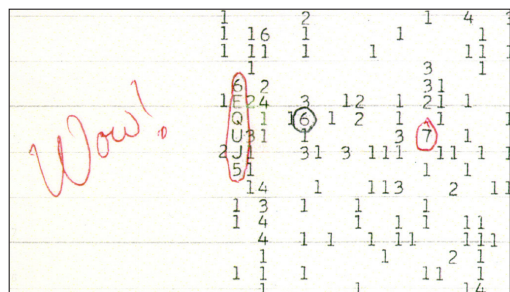 1 2 1 4 3
1 16 1 1 1
1 11 1 1 11 1
1 3 1
6 2 31
1E24 3 12 1 21 1
Wow!
Q 1 16 1 2 1 1 1 1
U31 1 3 7
2J1 31 3 111 11 1 1
5 1 1 1
14 1 113 2 11
1 3 1 1 1
1 4 1 1 1 11
4 1 1 1 11 111
1 1 2 1
1 1 1 11 1
1 1 14